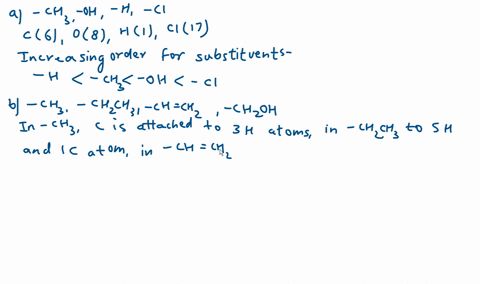 a) -CH3, -OH, -H, -Cl
C(6), O(8), H(1), Cl(17)
Increasing order for substituents-
-H < -CH3 < -OH < -Cl
b) -CH3, -CH2CH3, -CH=CH2, -CH2OH
In -CH3, C is attached to 3H atoms, in -CH2CH3 to 5H
and 1C atom, in -CH=CH2